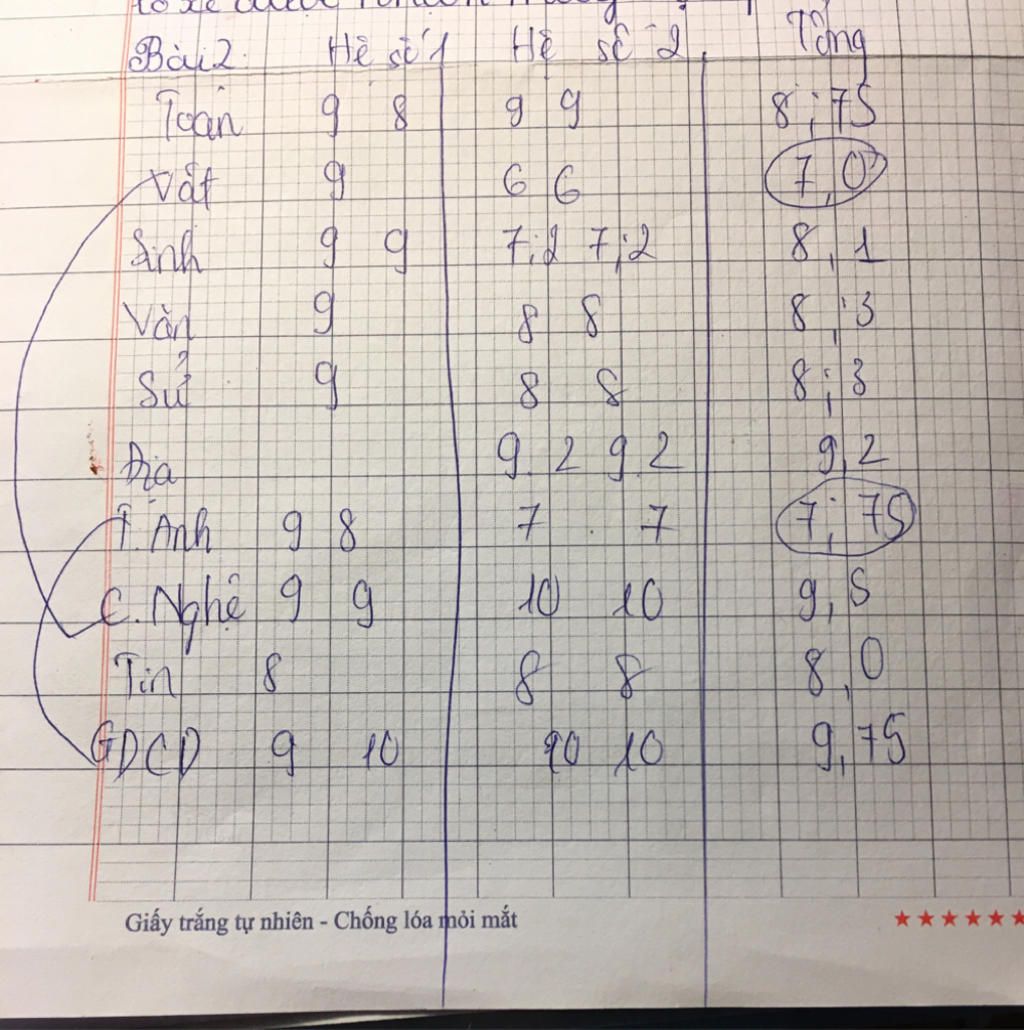 Bài 2 Hệ số 1 Hệ số 2 Tổng
Toán 9 8 9 9 8;75
Vât 9 6 6 7,0
Sinh 9 9 7;2 7;2 8,1
Văn 9 8 8 8,3
Sử 9 8 8 8;3
Địa 9.2 9.2 9,2
T. Anh 9 8 7 . 7 7; 75
C. Nghệ 9 9 10 10 9,5
Tin 8 8 8 8,0
GDCD 9 10 10 10 9,75
Giấy trắng tự nhiên - Chống lóa mỏi mắt